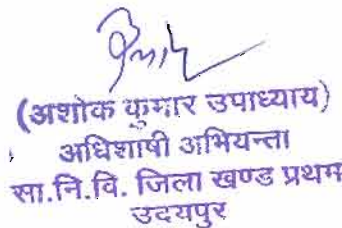 (अशोक कुमार उपाध्याय)
अधिशाषी अभियन्ता
सा.नि.वि. जिला खण्ड प्रथम
उदयपुर